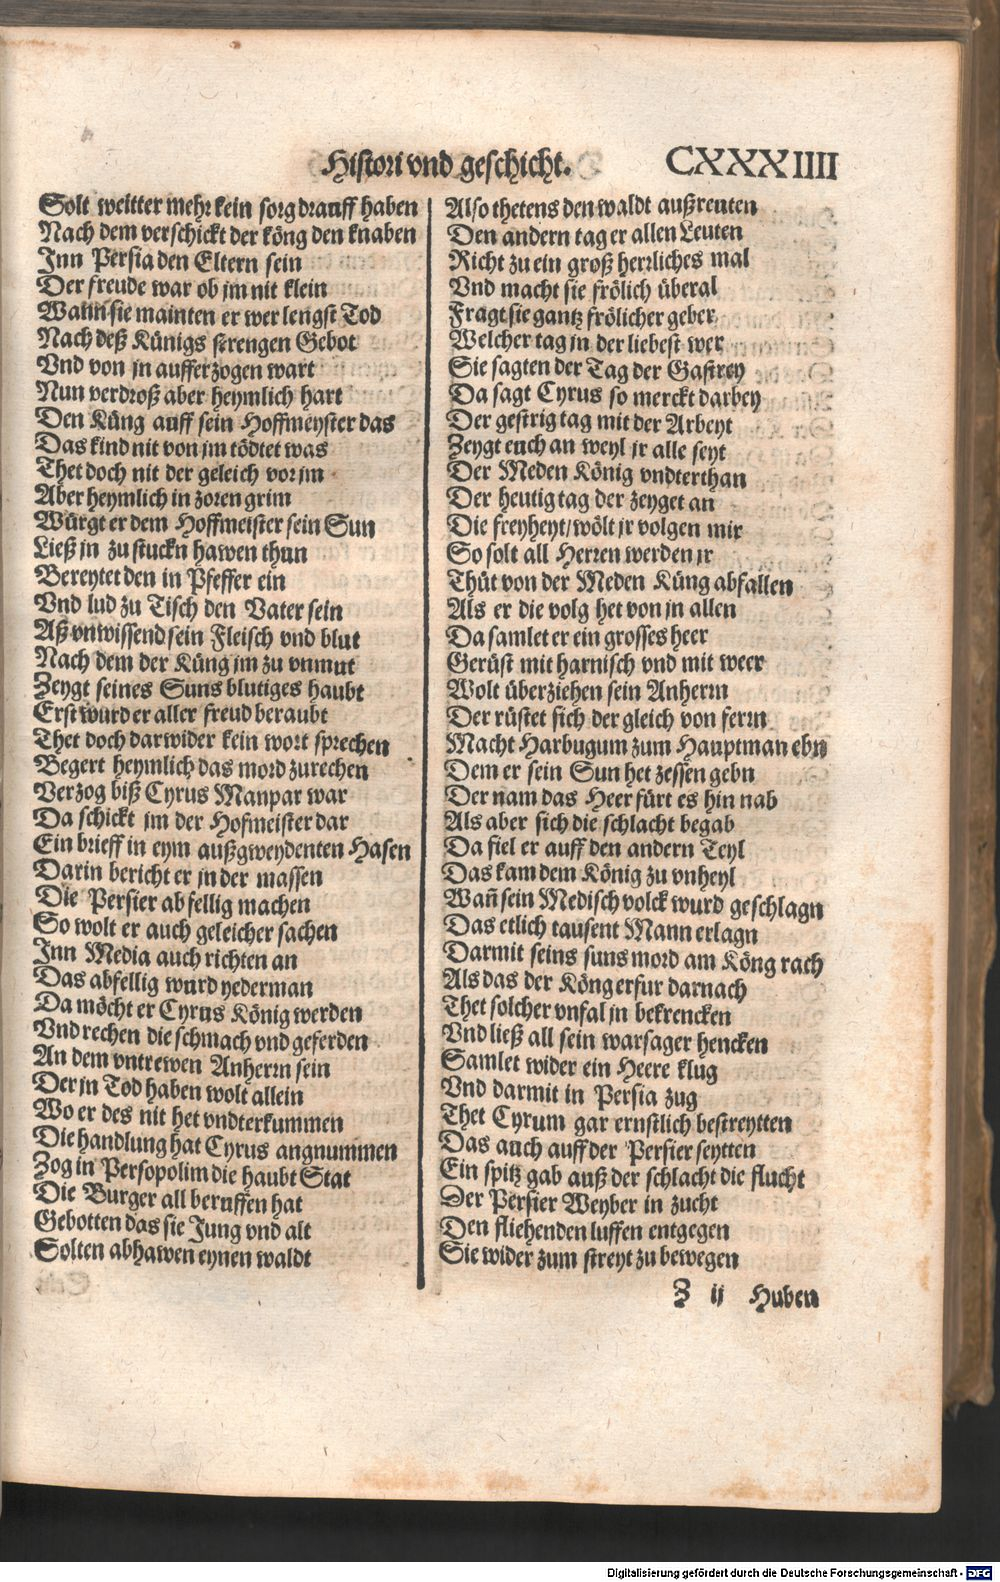 Histori vnd geschicht. CXXXIIII
Solt weitter mehr kein sorg drauff haben
Nach dem verschickt der köng den knaben
Inn Persia den Eltern sein
Der freude war ob jm nit klein
Wann sie mainten er wer lengst Tod
Nach deß Künigs strengen Gebot
Vnd von jn aufferzogen wart
Nun verdroß aber heymlich hart
Den Küng auff sein Hoffmeyster das
Das kind nit von jm tödtet was
Thet doch nit der geleich vor jm
Aber heymlich in zoren grim
Würgt er dem Hoffmeister sein Sun
Ließ jn zu stuckn hawen thun
Bereytet den in Pfeffer ein
Vnd lud zu Tisch den Vater sein
Aß vnwissend sein Fleisch vnd blut
Nach dem der Küng jm zu vnmut
Zeygt seines Suns blutiges haubt
Erst wurd er aller freud beraubt
Thet doch darwider kein wort sprechen
Begert heymlich das mord zurechen
Verzog biß Cyrus Manpar war
Da schickt jm der Hofmeister dar
Ein brieff in eym außgweydenten Hasen
Darin bericht er jn der massen
Die Persier abfellig machen
So wolt er auch geleicher sachen
Inn Media auch richten an
Das abfellig wurd yederman
Da möcht er Cyrus König werden
Vnd rechen die schmach vnd geferden
An dem vntrewen Anherrn sein
Der jn Tod haben wolt allein
Wo er des nit het vndterkummen
Die handlung hat Cyrus angnummen
Zog in Persopolim die haubt Stat
Die Burger all beruffen hat
Gebotten das sie Jung vnd alt
Solten abhawen eynen waldt
Also thetens den waldt außreuten
Den andern tag er allen Leuten
Richt zu ein groß herrliches mal
Vnd macht sie frölich überal
Fragt sie gantz frölicher geber
Welcher tag jn der liebest wer
Sie sagten der Tag der Gastrey
Da sagt Cyrus so merckt darbey
Der gestrig tag mit der Arbeyt
Zeygt euch an weyl jr alle seyt
Der Meden König vndterthan
Der heutig tag der zeyget an
Die freyheyt/ wölt jr volgen mir
So solt all Herren werden jr
Thüt von der Meden Küng abfallen
Als er die volg het von jn allen
Da samlet er ein grosses heer
Gerüst mit harnisch vnd mit weer
Wolt überziehen sein Anherrn
Der rüstet sich der gleich von ferrn
Macht Harbugum zum Hauptman ebn
Dem er sein Sun het zessen gebn
Der nam das Heer fürt es hin nab
Als aber sich die schlacht begab
Da fiel er auff den andern Teyl
Das kam dem König zu vnheyl
Wañ sein Medisch volck wurd geschlagn
Das etlich tausent Mann erlagn
Darmit seins suns mord am Köng rach
Als das der Köng erfur darnach
Thet solcher vnfal jn bekrencken
Vnd ließ all sein warsager hencken
Samlet wider ein Heere klug
Vnd darmit in Persia zug
Thet Cyrum gar ernstlich bestreytten
Das auch auff der Persier seytten
Ein spitz gab auß der schlacht die flucht
Der Persier Weyber in zucht
Den fliehenden luffen entgegen
Sie wider zum streyt zu bewegen
Z ij Huben
Digitalisierung gefördert durch die Deutsche Forschungsgemeinschaft - DFG